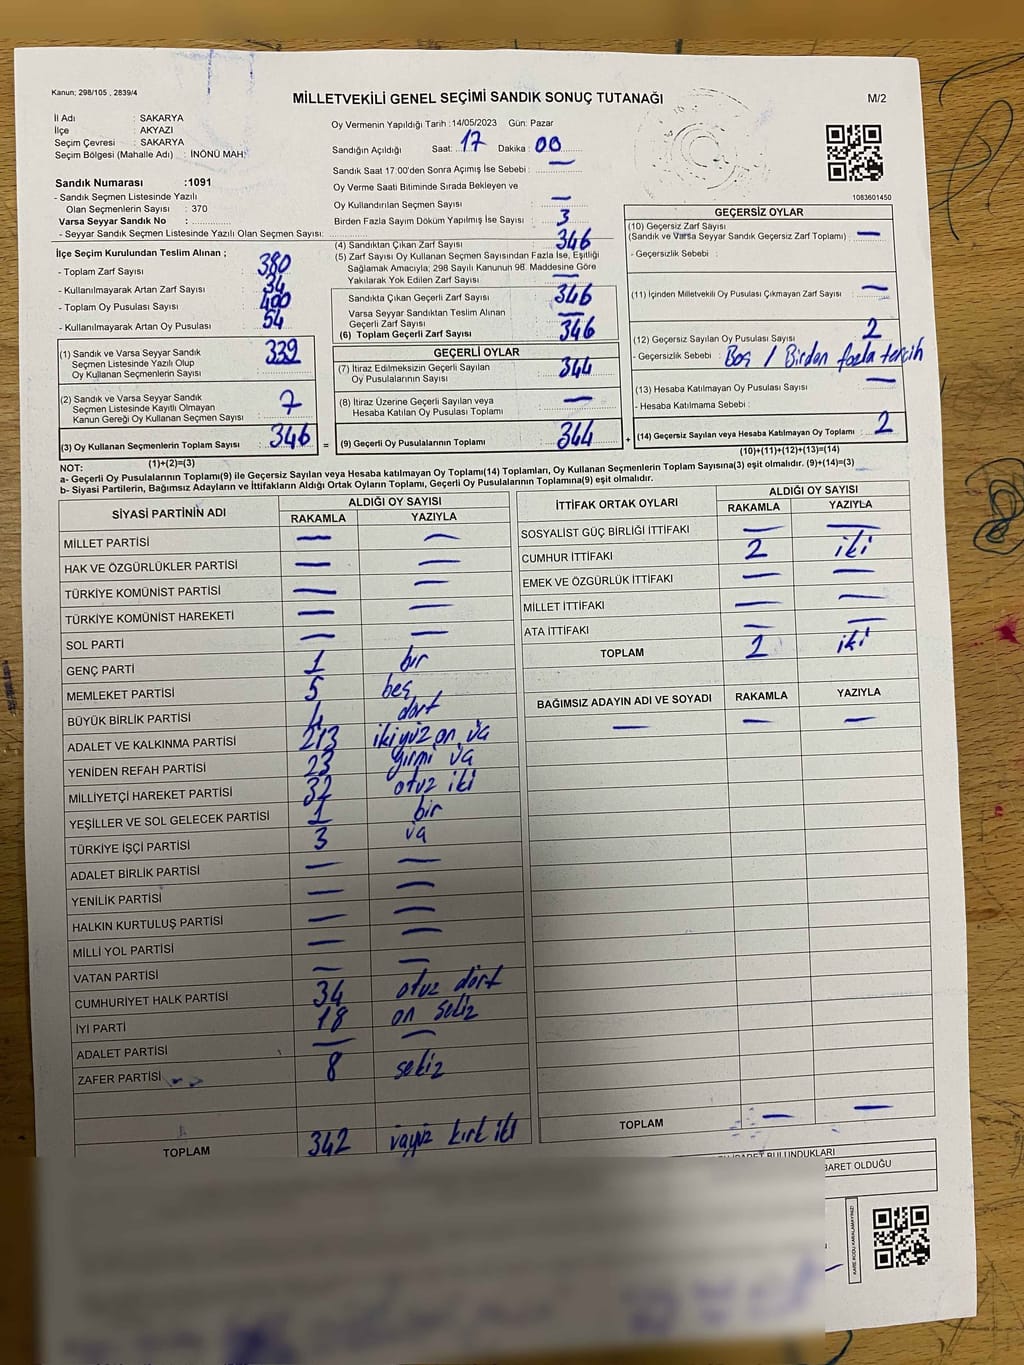 Kanun; 298/105 , 2839/4
MİLLETVEKİLİ GENEL SEÇİMİ SANDIK SONUÇ TUTANAĞI
M/2
İl Adı : SAKARYA
İlçe : AKYAZI
Seçim Çevresi : SAKARYA
Seçim Bölgesi (Mahalle Adı) : İNÖNÜ MAH.
Oy Vermenin Yapıldığı Tarih : 14/05/2023 Gün: Pazar
Sandığın Açıldığı Saat: 17 Dakika : 00
Sandık Saat 17:00'den Sonra Açımış İse Sebebi : —
Oy Verme Saati Bitiminde Sırada Bekleyen ve
Oy Kullandırılan Seçmen Sayısı —
Birden Fazla Sayım Döküm Yapılmış İse Sayısı 3
1083601450
Sandık Numarası :1091
- Sandık Seçmen Listesinde Yazılı
Olan Seçmenlerin Sayısı : 370
Varsa Seyyar Sandık No :
- Seyyar Sandık Seçmen Listesinde Yazılı Olan Seçmen Sayısı:
İlçe Seçim Kurulundan Teslim Alınan ;
- Toplam Zarf Sayısı 380
- Kullanılmayarak Artan Zarf Sayısı 34
- Toplam Oy Pusulası Sayısı 400
- Kullanılmayarak Artan Oy Pusulası 54
(1) Sandık ve Varsa Seyyar Sandık
Seçmen Listesinde Yazılı Olup
Oy Kullanan Seçmenlerin Sayısı 339
(2) Sandık ve Varsa Seyyar Sandık
Seçmen Listesinde Kayıtlı Olmayan
Kanun Gereği Oy Kullanan Seçmen Sayısı 7
(3) Oy Kullanan Seçmenlerin Toplam Sayısı : 346 =
(1)+(2)=(3)
(4) Sandıktan Çıkan Zarf Sayısı 346
(5) Zarf Sayısı Oy Kullanan Seçmen Sayısından Fazla İse, Eşitliği
Sağlamak Amacıyla; 298 Sayılı Kanunun 98. Maddesine Göre
Yakılarak Yok Edilen Zarf Sayısı —
Sandıkta Çıkan Geçerli Zarf Sayısı 346
Varsa Seyyar Sandıktan Teslim Alınan
Geçerli Zarf Sayısı —
(6) Toplam Geçerli Zarf Sayısı 346
GEÇERLİ OYLAR
(7) İtiraz Edilmeksizin Geçerli Sayılan
Oy Pusulalarının Sayısı 344
(8) İtiraz Üzerine Geçerli Sayılan veya
Hesaba Katılan Oy Pusulası Toplamı —
(9) Geçerli Oy Pusulalarının Toplamı 344 +
GEÇERSİZ OYLAR
(10) Geçersiz Zarf Sayısı
(Sandık ve Varsa Seyyar Sandık Geçersiz Zarf Toplamı) —
- Geçersizlik Sebebi :
(11) İçinden Milletvekili Oy Pusulası Çıkmayan Zarf Sayısı : —
(12) Geçersiz Sayılan Oy Pusulası Sayısı 2
- Geçersizlik Sebebi : Boş / Birden fazla tercih
(13) Hesaba Katılmayan Oy Pusulası Sayısı —
- Hesaba Katılmama Sebebi :
(14) Geçersiz Sayılan veya Hesaba Katılmayan Oy Toplamı : 2
(10)+(11)+(12)+(13)=(14)
NOT:
a- Geçerli Oy Pusulalarının Toplamı(9) ile Geçersiz Sayılan veya Hesaba katılmayan Oy Toplamı(14) Toplamları, Oy Kullanan Seçmenlerin Toplam Sayısına(3) eşit olmalıdır. (9)+(14)=(3)
b- Siyasi Partilerin, Bağımsız Adayların ve İttifakların Aldığı Ortak Oyların Toplamı, Geçerli Oy Pusulalarının Toplamına(9) eşit olmalıdır.
SİYASİ PARTİNİN ADI ALDIĞI OY SAYISI
RAKAMLA YAZIYLA
MİLLET PARTİSİ — —
HAK VE ÖZGÜRLÜKLER PARTİSİ — —
TÜRKİYE KOMÜNİST PARTİSİ — —
TÜRKİYE KOMÜNİST HAREKETİ — —
SOL PARTİ — —
GENÇ PARTİ 1 bir
MEMLEKET PARTİSİ 5 beş
BÜYÜK BİRLİK PARTİSİ 4 dört
ADALET VE KALKINMA PARTİSİ 213 ikiyüz on üç
YENİDEN REFAH PARTİSİ 23 yirmi üç
MİLLİYETÇİ HAREKET PARTİSİ 32 otuz iki
YEŞİLLER VE SOL GELECEK PARTİSİ 1 bir
TÜRKİYE İŞÇİ PARTİSİ 3 üç
ADALET BİRLİK PARTİSİ — —
YENİLİK PARTİSİ — —
HALKIN KURTULUŞ PARTİSİ — —
MİLLİ YOL PARTİSİ — —
VATAN PARTİSİ — —
CUMHURİYET HALK PARTİSİ 34 otuz dört
İYİ PARTİ 18 on sekiz
ADALET PARTİSİ — —
ZAFER PARTİSİ 8 sekiz
TOPLAM 342 üçyüz kırk iki
İTTİFAK ORTAK OYLARI ALDIĞI OY SAYISI
RAKAMLA YAZIYLA
SOSYALİST GÜÇ BİRLİĞİ İTTİFAKI — —
CUMHUR İTTİFAKI 2 iki
EMEK VE ÖZGÜRLÜK İTTİFAKI — —
MİLLET İTTİFAKI — —
ATA İTTİFAKI — —
TOPLAM 2 iki
BAĞIMSIZ ADAYIN ADI VE SOYADI RAKAMLA YAZIYLA
— — —
TOPLAM — —
BULUNDUKLARI
BARET OLDUĞU
KARE KODU KARALAMAYINIZ!